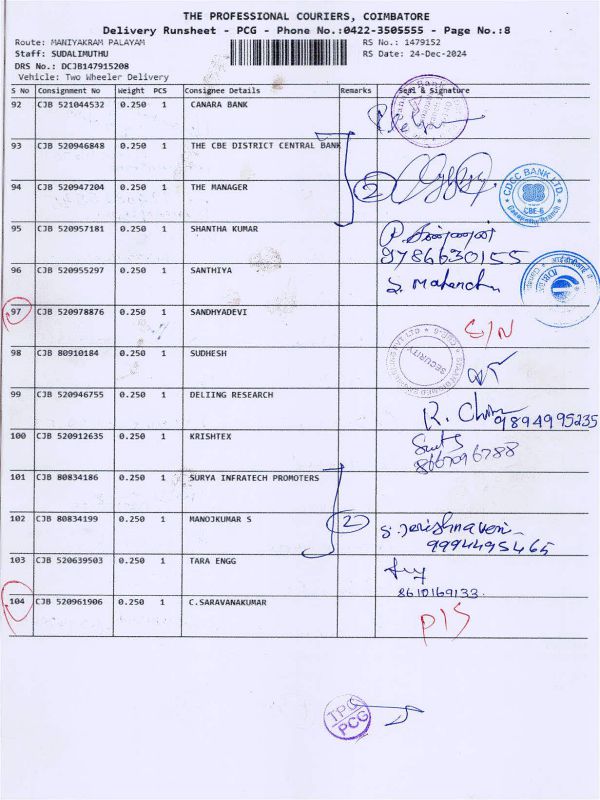 THE PROFESSIONAL COURIERS, COIMBATORE
Delivery Runsheet - PCG - Phone No.:0422-3505555 - Page No.:8
Route: MANIYAKRAM PALAYAM RS No.: 1479152
Staff: SUDALIMUTHU RS Date: 24-Dec-2024
DRS No.: DCJB147915208
Vehicle: Two Wheeler Delivery
S No Consignment No Weight PCS Consignee Details Remarks Seal & Signature
92 CJB 521044532 0.250 1 CANARA BANK
93 CJB 520946848 0.250 1 THE CBE DISTRICT CENTRAL BANK
94 CJB 520947204 0.250 1 THE MANAGER 2
CDCC BANK LTD.
CBE-6
95 CJB 520957181 0.250 1 SHANTHA KUMAR
9786630155
96 CJB 520955297 0.250 1 SANTHIYA
97 CJB 520978876 0.250 1 SANDHYADEVI S/N
98 CJB 80910184 0.250 1 SUDHESH
SECURITY
99 CJB 520946755 0.250 1 DELIING RESEARCH
9894995235
100 CJB 520912635 0.250 1 KRISHTEX
8667096788
101 CJB 80834186 0.250 1 SURYA INFRATECH PROMOTERS
102 CJB 80834199 0.250 1 MANOJKUMAR S 2
9994495465
103 CJB 520639503 0.250 1 TARA ENGG
8610169133
104 CJB 520961906 0.250 1 C.SARAVANAKUMAR
P/S
TPC
PCG